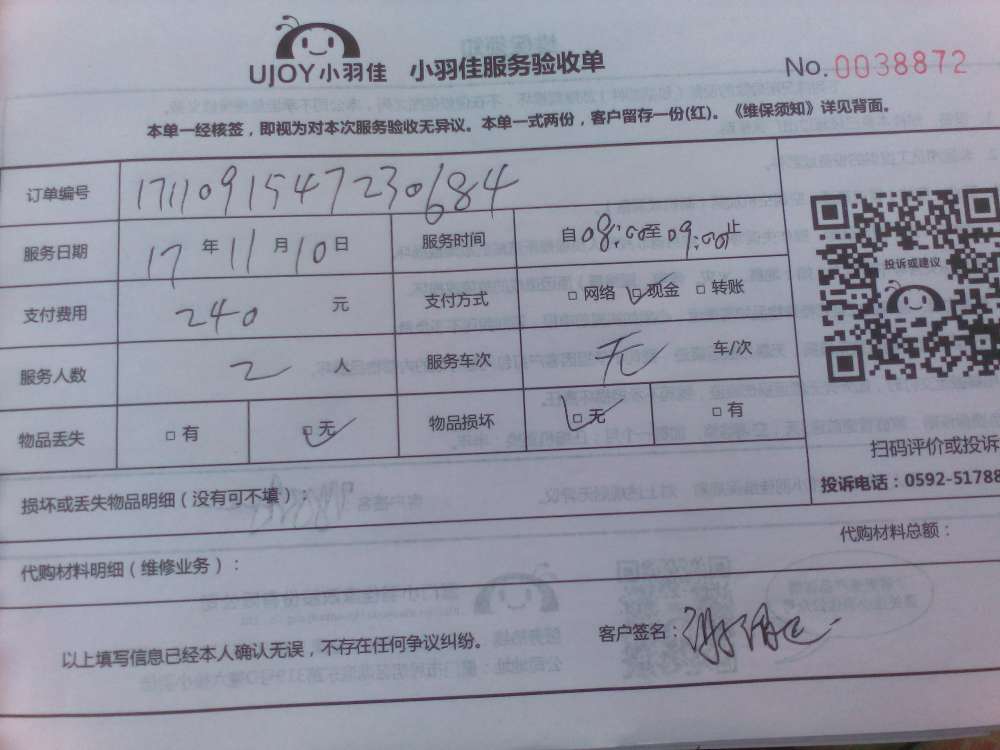 UJOY小羽佳 小羽佳服务验收单 No.0038872
本单一经核签，即视为对本次服务验收无异议。本单一式两份，客户留存一份(红)。《维保须知》详见背面。
订单编号 1711091547230684
服务日期 17年11月10日 服务时间 自08:00至09:00止
支付费用 240元 支付方式 □网络 □现金 □转账
投诉或建议
服务人数 2人 服务车次 无 车/次
物品丢失 □有 □无 物品损坏 □无 □有
扫码评价或投诉
损坏或丢失物品明细（没有可不填）：
投诉电话：0592-51788
代购材料明细（维修业务）： 代购材料总额：
以上填写信息已经本人确认无误，不存在任何争议纠纷。 客户签名：